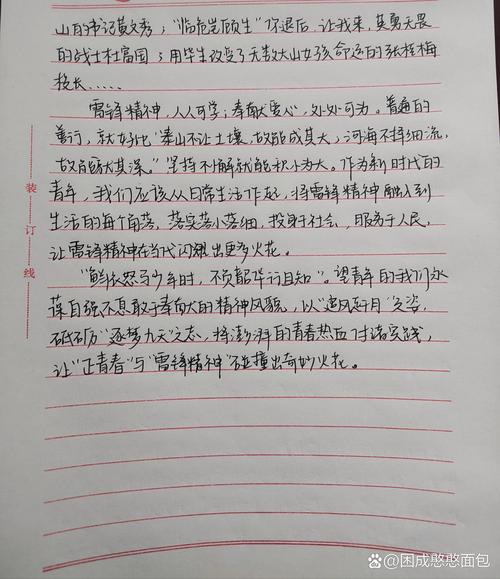 山的书记黄文秀；“临危岂顾生”“你退后，让我来，英勇无畏
的战士杜富国；用毕生改变了无数大山女孩命运的张桂梅
校长……
雷锋精神，人人可学；奉献爱心，处处可为。普通的
善行，就好比“泰山不让土壤，故能成其大，河海不择细流，
故能就其深。”坚持不懈就能积小为大。作为新时代的
青年，我们应该从日常生活作起，将雷锋精神融入到
生活的每个角落，落实落小落细，投身于社会，服务于人民，
让雷锋精神在当代闪耀出更多火花。
“鲜衣怒马少年时，不负韶华行且知”。望青年的我们永
葆自强不息敢于奉献的精神风貌，以“追风赶月”之姿，
砥砺“逐梦九天”之志，将澎湃的青春热血付诸实践，
让“正青春”与“雷锋精神”碰撞出奇妙火花。
装
订
线
困成憨憨面包